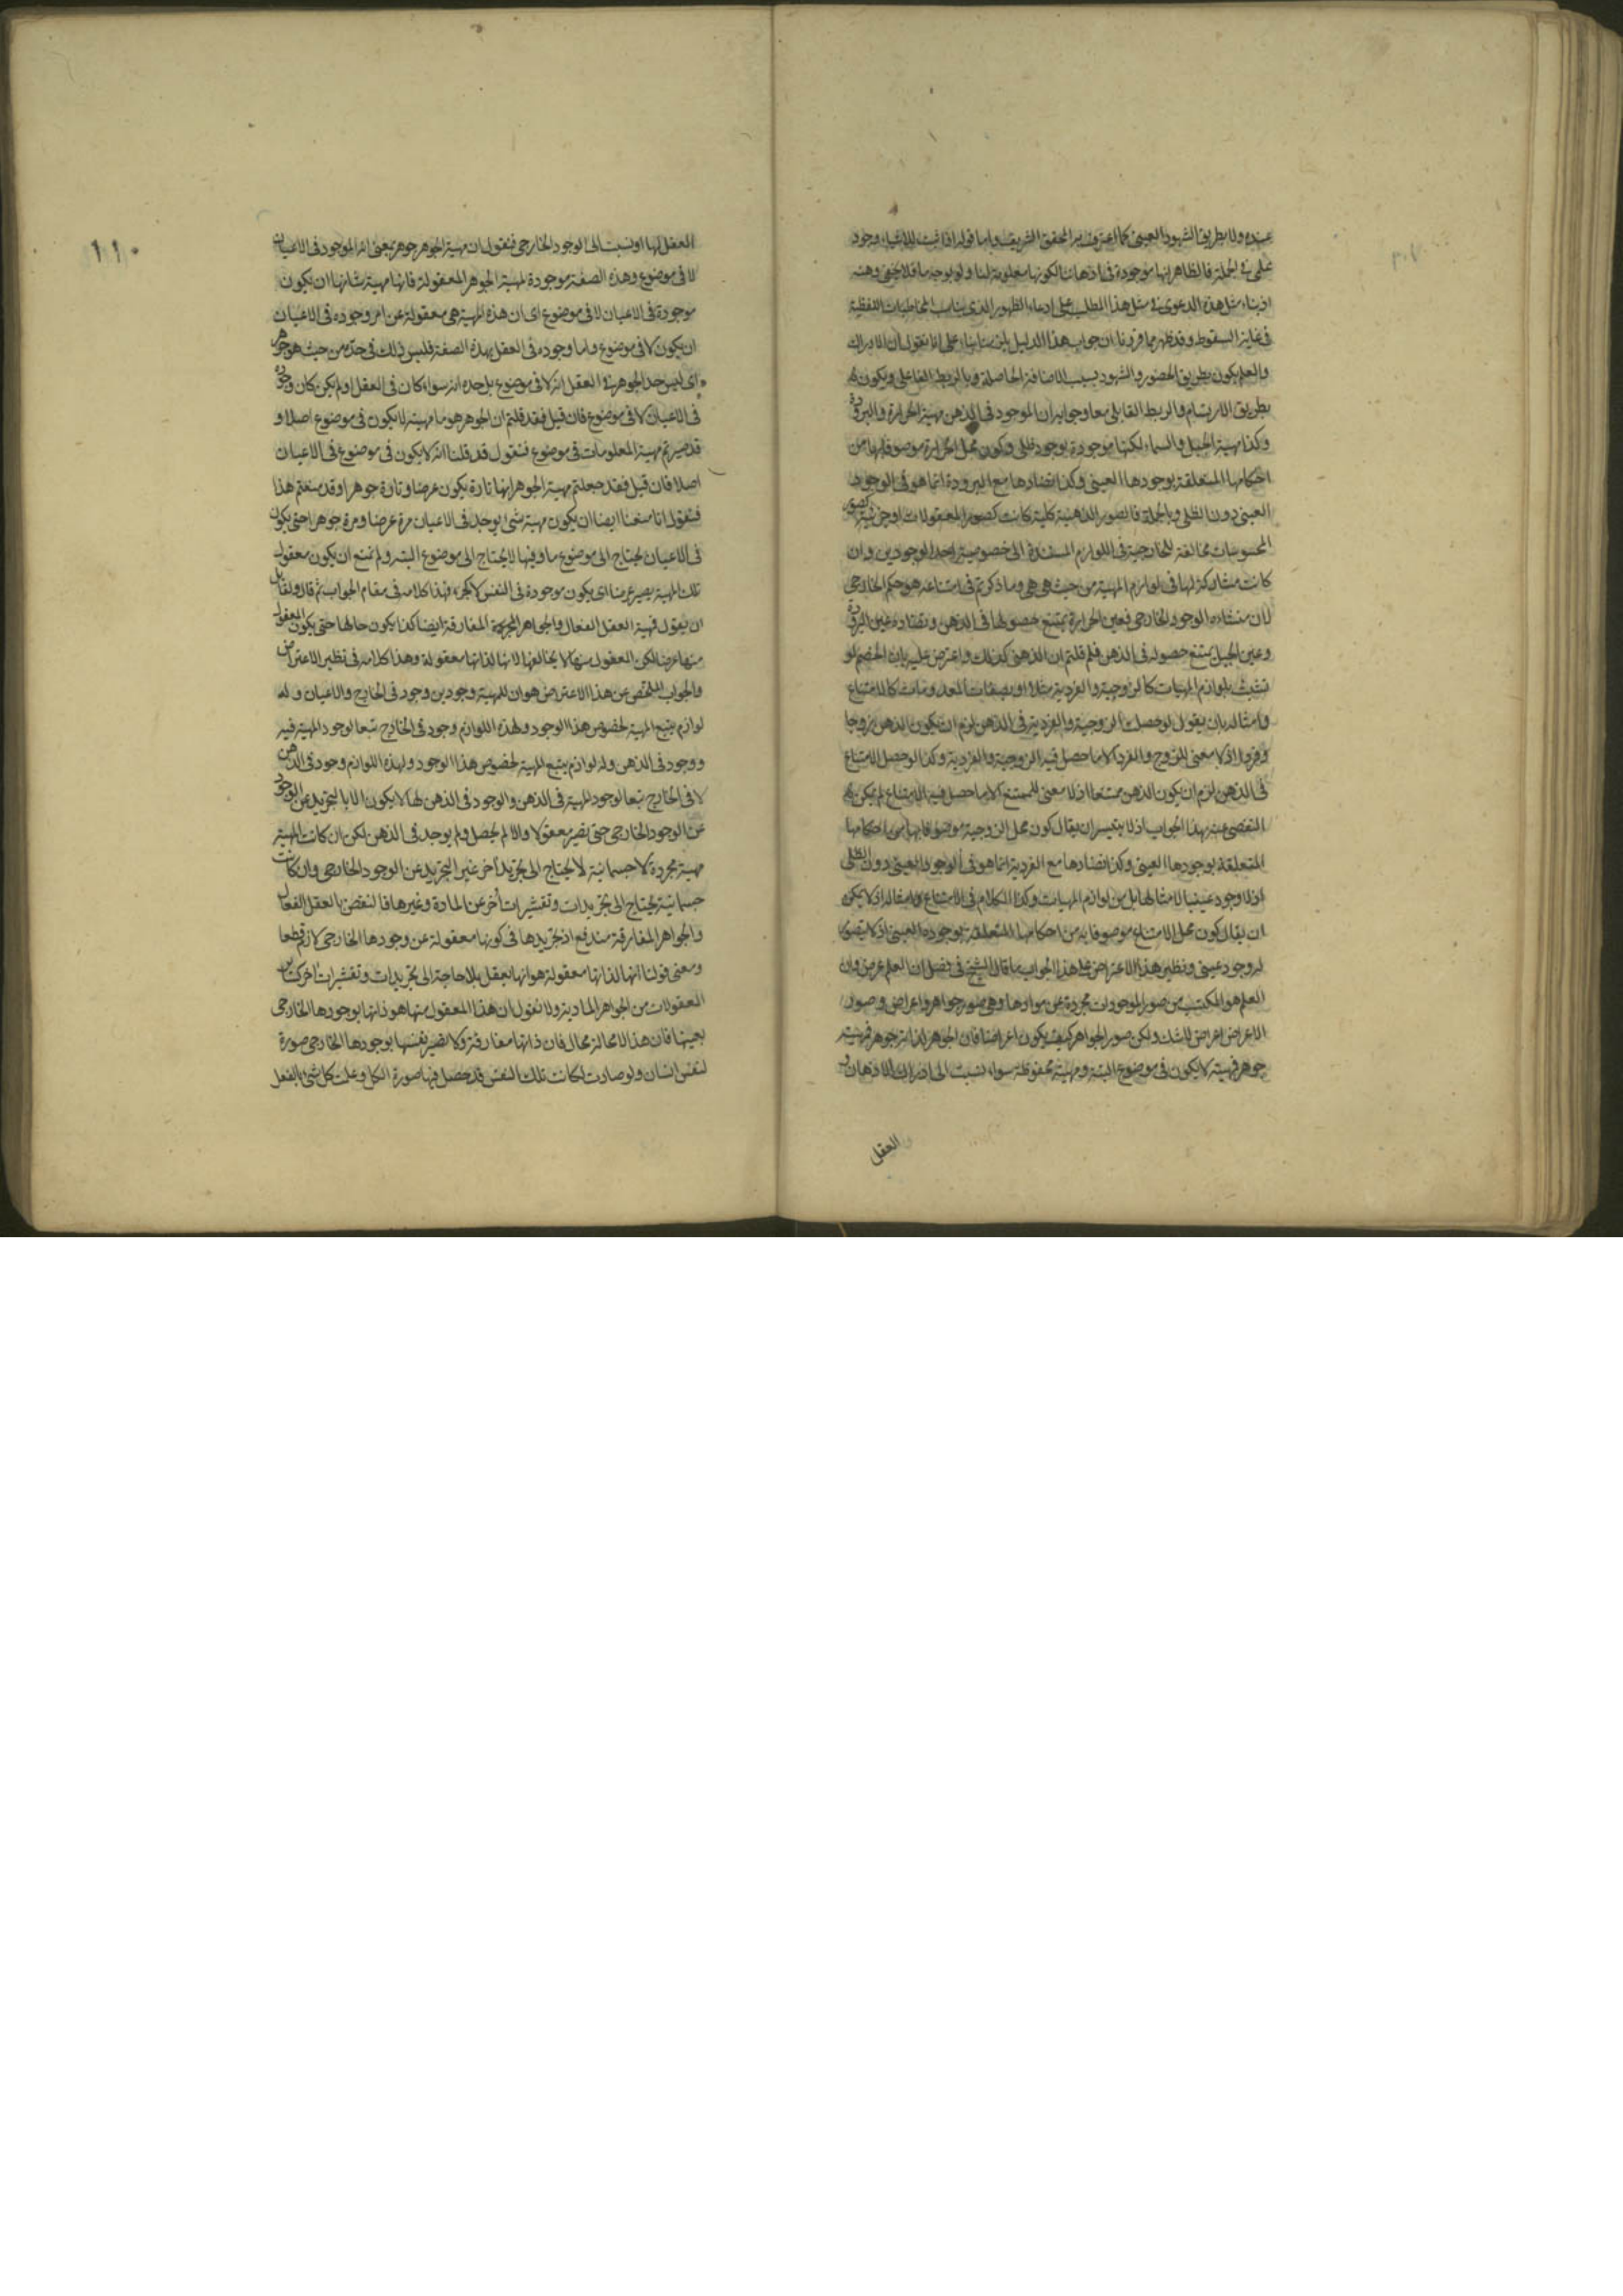 عنده ولا بطريق الشهود العيني كما اعترف به المحقق الشريف واما قوله اذا ثبت للاشياء وجود
علمي في الجملة فالظاهر انها موجودة في اذهاننا لكونها معلومة لنا ولو بوجه ما فلا يخفى وهنه
اذ بناء مثل هذه الدعوى في مثل هذا المطلب على ادعاء الظهور الذي يناسب المخاطبات اللفظية
في غاية السقوط وقد ظهر مما قررنا ان جواب هذا الدليل على انا نقول ان الادراك
والعلم يكون بطريق الحضور والشهود بسبب الاضافة الحاصلة وبالربط الفاعلي ويكون
بطريق الارتسام والربط القابلي معا وجوابه ان الموجود في الذهن مهية الحرارة والبرودة
وكذا مهية الجبل والسماء لكنها موجودة بوجود ظلي وكون محل الحرارة موصوفا بها من
احكامها المتعلقة بوجودها العيني وكذا تضادها مع البرودة انما هو في الوجود
العيني دون الظلي وبالجملة فالصور الذهنية كلية كانت كصور المعقولات او جزئية كصور
المحسوسات مخالفة للخارجية في اللوازم المستندة الى خصوصية احد الوجودين وان
كانت مشاركة لها في لوازم المهية من حيث هي هي وما ذكرتم في امتناعه هو حكم الخارجي
لان منشاءه الوجود الخارجي فعين الحرارة يمتنع حصولها في الذهن وتضاده عين البرودة
وعين الجبل يمتنع حصوله في الذهن فلم قلتم ان الذهني كذلك واعترض عليه بان الخصم لو
تشبث بلوازم المهيات كالزوجية والفردية مثلا او بصفات المعدومات كالامتناع
وامثاله بان يقول لو حصلت الزوجية والفردية في الذهن لزم ان يكون الذهن زوجا
وفردا اذ لا معنى للزوج والفرد الا ما حصل فيه الزوجية والفردية وكذا لو حصل الامتناع
في الذهن لزم ان يكون الذهن ممتنعا اذ لا معنى للممتنع الا ما حصل فيه الامتناع لم يكن
التفصي عنه بهذا الجواب اذ لا يتيسر ان يقال كون محل الزوجية موصوفا بها من احكامها
المتعلقة بوجودها العيني وكذا تضادها مع الفردية انما هو في الوجود العيني دون الظلي
اذ لا وجود عينيا لامثالها بل من لوازم المهيات وكذا الكلام في الامتناع وامثاله اذ لا يمكن
ان يقال كون محل الامتناع موصوفا به من احكامها المتعلقة بوجوده العيني اذ لا يتصور
له وجود عيني ونظير هذا الاعتراض على هذا الجواب ما قال الشيخ في فصل ان العلم عرض وان
العلم هو المكتسب من صور الموجودات مجردة عن موادها وهي صور جواهر واعراض وصور
الاعراض اعراض لا شك ولكن صور الجواهر كيف يكون اعراضا فان الجوهر لذاته جوهر فمهيته
جوهر فمهيته لا يكون في موضوع البتة ومهيته محفوظة سواء نسبت الى ادراك الاذهان
العقل
١١٠
العقل لها او نسبت الى الوجود الخارجي فنقول ان مهية الجوهر جوهر بمعنى انه الموجود في الاعيان
لا في موضوع وهذه الصفة موجودة لمهية الجوهر المعقولة فانها مهية شانها ان يكون
موجودة في الاعيان لا في موضوع اى ان هذه المهية هي معقولة عن امر وجوده في الاعيان
ان يكون لا في موضوع واما وجوده في العقل بهذه الصفة فليس ذلك في حده من حيث هو جوهر
اى ليس حد الجوهر في العقل انه لا في موضوع بل حده انه سواء كان في العقل او لم يكن كان وجوده
في الاعيان لا في موضوع فان قيل فقد قلتم ان الجوهر هو ما مهيته لا يكون في موضوع اصلا و
قد صيرتم مهية المعلومات في موضوع فنقول قد قلنا انه لا يكون في موضوع في الاعيان
اصلا فان قيل فقد جعلتم مهية الجوهر انها تارة يكون عرضا وتارة جوهرا وقد منعتم هذا
فنقول انا منعنا ايضا ان يكون مهية شئ يوجد في الاعيان مرة عرضا ومرة جوهرا حتى يكون
في الاعيان يحتاج الى موضوع ما وفيها لا يحتاج الى موضوع البتة ولم نمنع ان يكون معقول
تلك المهية يصير عرضا اى يكون موجودة في النفس لا كجزء فهذا كلامه في مقام الجواب ثم قال ولقائل
ان يقول فمهية العقل الفعال والجواهر المجردة المفارقة ايضا كذا يكون حالها حتى يكون المعقول
منها عرضا لكن المعقول منها لا يخالفها لانها لذاتها معقولة وهذا كلامه في نظير الاعتراض
والجواب الملخص عن هذا الاعتراض هو ان للمهية وجودين وجود في الخارج والاعيان وله
لوازم يتبع المهية لخصوص هذا الوجود ولهذه اللوازم وجود في الخارج تبعا لوجود المهية فيه
ووجود في الذهن وله لوازم يتبع المهية لخصوص هذا الوجود ولهذه اللوازم وجود في الذهن
لا في الخارج تبعا لوجود المهية في الذهن والوجود في الذهن لها لا يكون الا بالتجريد عن الوجود
عن الوجود الخارجي حتى يصير معقولا والا لم يحصل ولم يوجد في الذهن لكن ان كانت المهية
مهية مجردة لا جسمانية لا يحتاج الى تجريد آخر غير التجريد عن الوجود الخارجي وان كانت
جسمانية يحتاج الى تجريدات وتقشيرات أخر عن المادة وغيرها فالنقض بالعقل الفعال
والجواهر المفارقة مندفع اذ تجريدها في كونها معقولة عن وجودها الخارجي لازم قطعا
ومعنى قولنا انها لذاتها معقولة هو انها يعقل بلا حاجة الى تجريدات وتقشيرات اخر كساير
المعقولات من الجواهر المادية ولا نقول ان هذا المعقول منها هو ذاتها بوجودها الخارجي
بعينها فان هذا لا محالة محال فان ذاتها مفارقة ولا تصير نفسها بوجودها الخارجي صورة
لنفس انسان ولو صارت لكانت تلك النفس قد حصل فيها صورة الكل وعلمت كل شئ بالفعل